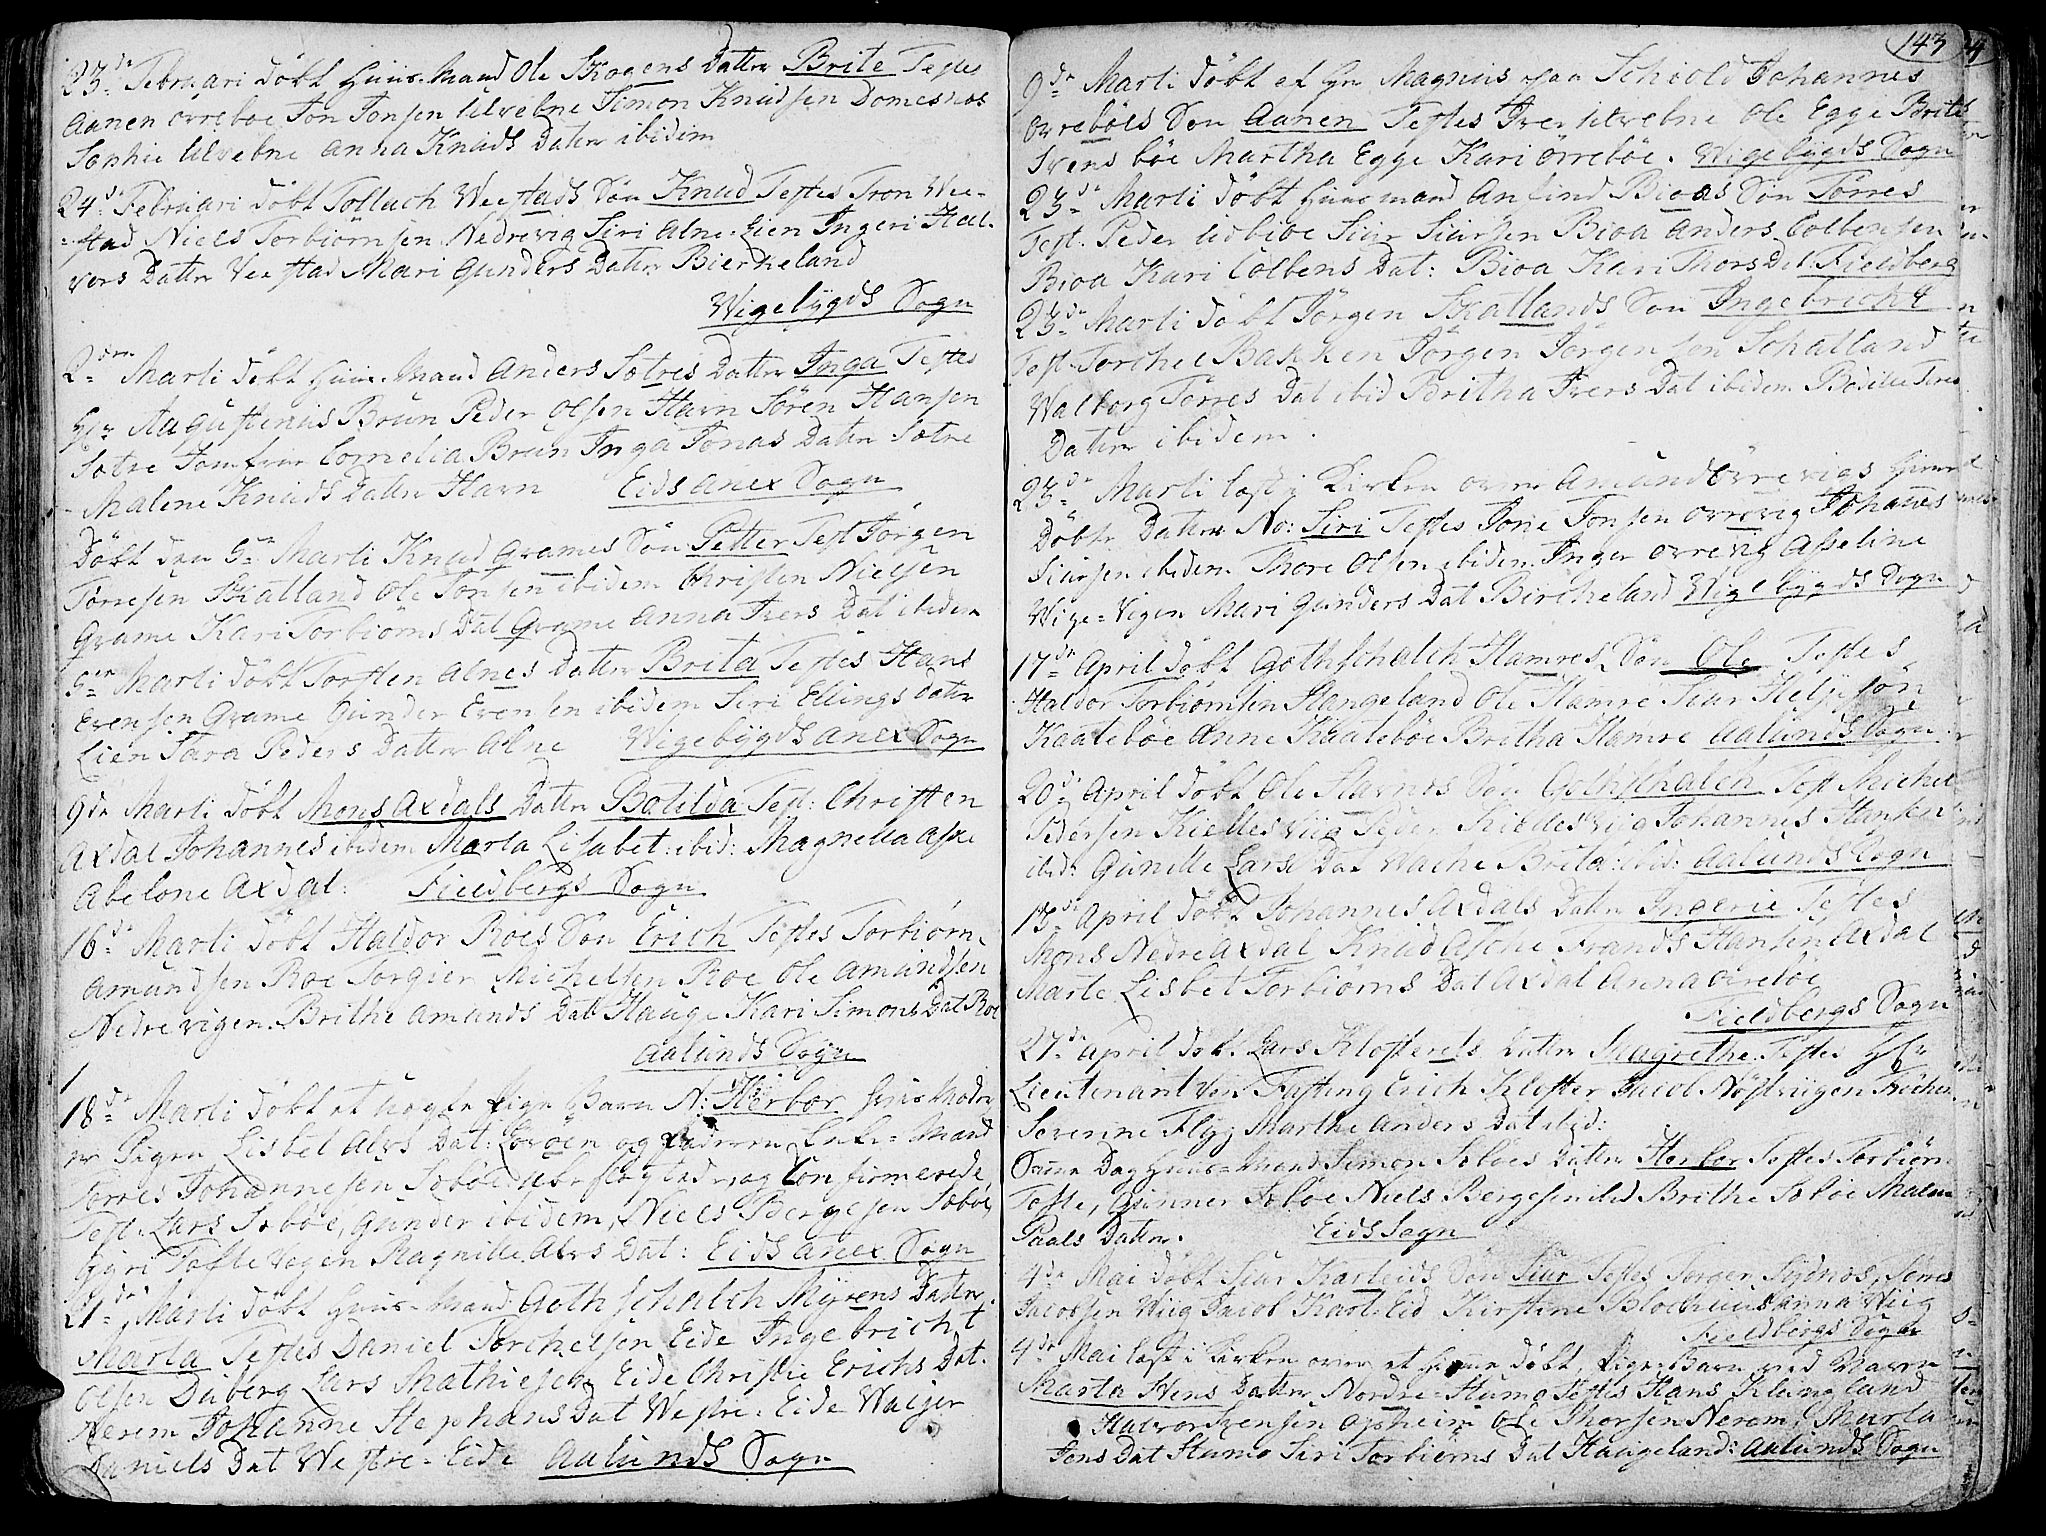 23de Februari döbt Huus-Mand Ole Skogens Datter Brite Testes
Aanen Ovreboe Jon Jonsen Ulvebne Simon Knudsen Domesnæs
Sophie Ulvebne Anna Knuds Datter ibidem
24de Februari döbt Tollach Weestads Sön Knud Testes Tron Wee-
stad Niels Torbiörnsen Nedrevig Siri Alne-Lien Ingeri Hal-
vors Datter Veestad Mari Gunders Datter Bierkeland
Wigebÿgds Sogn
2den Marti döbt Huus-Mand Anders Sætres Datter Inga Testes
Hr Augustenius Brun Peder Olsen Havn Sören Hansen
Sætre Jomfrue Cornelia Brun Inga Jonas Datter Sætre
Malene Knuds Datter Havn Eids Anex Sogn
Döbt den 5te Marti Knud Grames Sön Petter Test Jörgen
Törresen Skatland Ole Jonsen ibidem Christen Nielsen
Grame Kari Torbiörns Dat Grame Anna Ivers Dat ibidem
9de Marti döbt Torsten Alnes Datter Brita Testes Hans
Evensen Grame Gunder Evensen ibidem Siri Ellings Datter
Lien Sara Peders Datter Alne Wigebÿgds Anex Sogn
9de Marti döbt Mons Axdals Datter Botilda Test: Christen
Axdal Johannes ibidem Marta Lisabet: ibid: Magnelia Aske
Abelone Axdal: Fieldbergs Sogn
16de Marti döbt Haldor Roes Sön Erich Testes Torbiörn
Amundsen Roe Torgier Michelsen Roe Ole Amundsen
Nedrevigen Brithe Amunds Dat Hauge Kari Simons Dat Roe
Aalunds Sogn
18de Marti döbt et uægte Pige Barn N: Herbor hvis Moder
er Pigen Lisbet Alvs Dat: Evöen og Faderen Enke-Mand
Törres Johannesen Sæböe
Test: Lars Sæböe, Gunder ibidem, Niels Börgesen Sæböe
Gyri Toftevogen Ragnille Alvs Dat: Eids Anex Sogn
21de Marti döbt Huus-Mand Gothschalch Myrens Datter
Marta Testes Daniel Torchelsen Eide Ingebricht
Olsen Duberg Lars Mathiesen Eide Christie Erichs Dat.
Nerem Johanne Stephans Dat Westre-Eide Walger
Daniels Dat Westre-Eide Aalunds Sogn
143
9de Marti döbt af Hr Magnus paa Schiold Johannes
Ovreböes Sön Aanen Testes Iver Ulvebne Ole Egge Brite
Svensböe Martha Egge Kari Örreböe. Wigebÿgds Sogn
23de Marti döbt Huusmand Anfind Bioas Sön Törres
Test. Peder Udböe Siur Siursen Bioa Anders Colbensen
Bioa Kari Colbens Dat: Bioa Kari Thors Dat. Fieldberg
23de Marti döbt Jörgen Skatlands Sön Ingebricht
Test. Torchel Bakken Jörgen Jörgensen Schatland
Walborg Törres Dat ibid Britha Ivers Dat ibidem Bodille Ivers
Datter ibidem.
23de Marti læst i Kirken over Amund Övrevigs hiemme
Döbte Datter No: Siri Testes Jone Jonsen Ovrevig Johannes
Siursen ibidem Thore Olsen ibidem Inger Ovrevig Asseline
Wige-Vigen Mari Gunders Dat Birckeland Wigebÿgds Sogn
17de April döbt Gothschalch Hamres Sön Ole Testes
Haldor Torbiörnsen Hangeland Ole Hamre Siur Helgesön
Kaateböe Anne Kaateböe Britha Hamre Aalunds Sogn.
20de April döbt Ole Havnes Sön Gothschalch Test Michel
Pedersen Kieldesviig Peder Kieldesviig Johannes Hansen
ibid: Gunille Lars Dat Wache Brita: ibid: Aalunds Sogn
13de April döbt Johannes Axdals Datter Ingerie Testes
Mons Nedre Axdal Knud Asche Frands Hansen Axdal
Marte Lisbet Torbiörns Dat Axdal Anna Ovreböe
Fieldbergs Sogn
27de April döbt Lars Klosterets Datter Magrethe Testes Hr
Lieutenant Von Fasting Erich Kloster Jacob Nöstviigen Frichen
Severine Fly; Marthe Anders Dat ibid:
Samme Dag Huus-Mand Simon Sæböes Datter Herbor Testes Torbiörn
Tofte, Gunner Sæböe Niels Börgesen ibid Brithe Sæböe Malene
Paals Datter. Eids Sogn
4de Mai döbt Siur Karleids Sön Siur Testes Törger Sydnæs, Törres
Jacobsen Viig Jacob Karl-Eid Kirstine Blochuus Anna Viig
Fieldbergs Sogn
4de Mai læst i Kirken over et hiemme döbt Pige-Barn ved Navn
Marta Svens Datter Nordre-Humo Testes Hans Kleivaland
Halvor Svensen Opheim Ole Thorsen Nerem Marta
Jons Dat Humo Siri Torbiörns Dat Haugeland: Aalunds Sogn